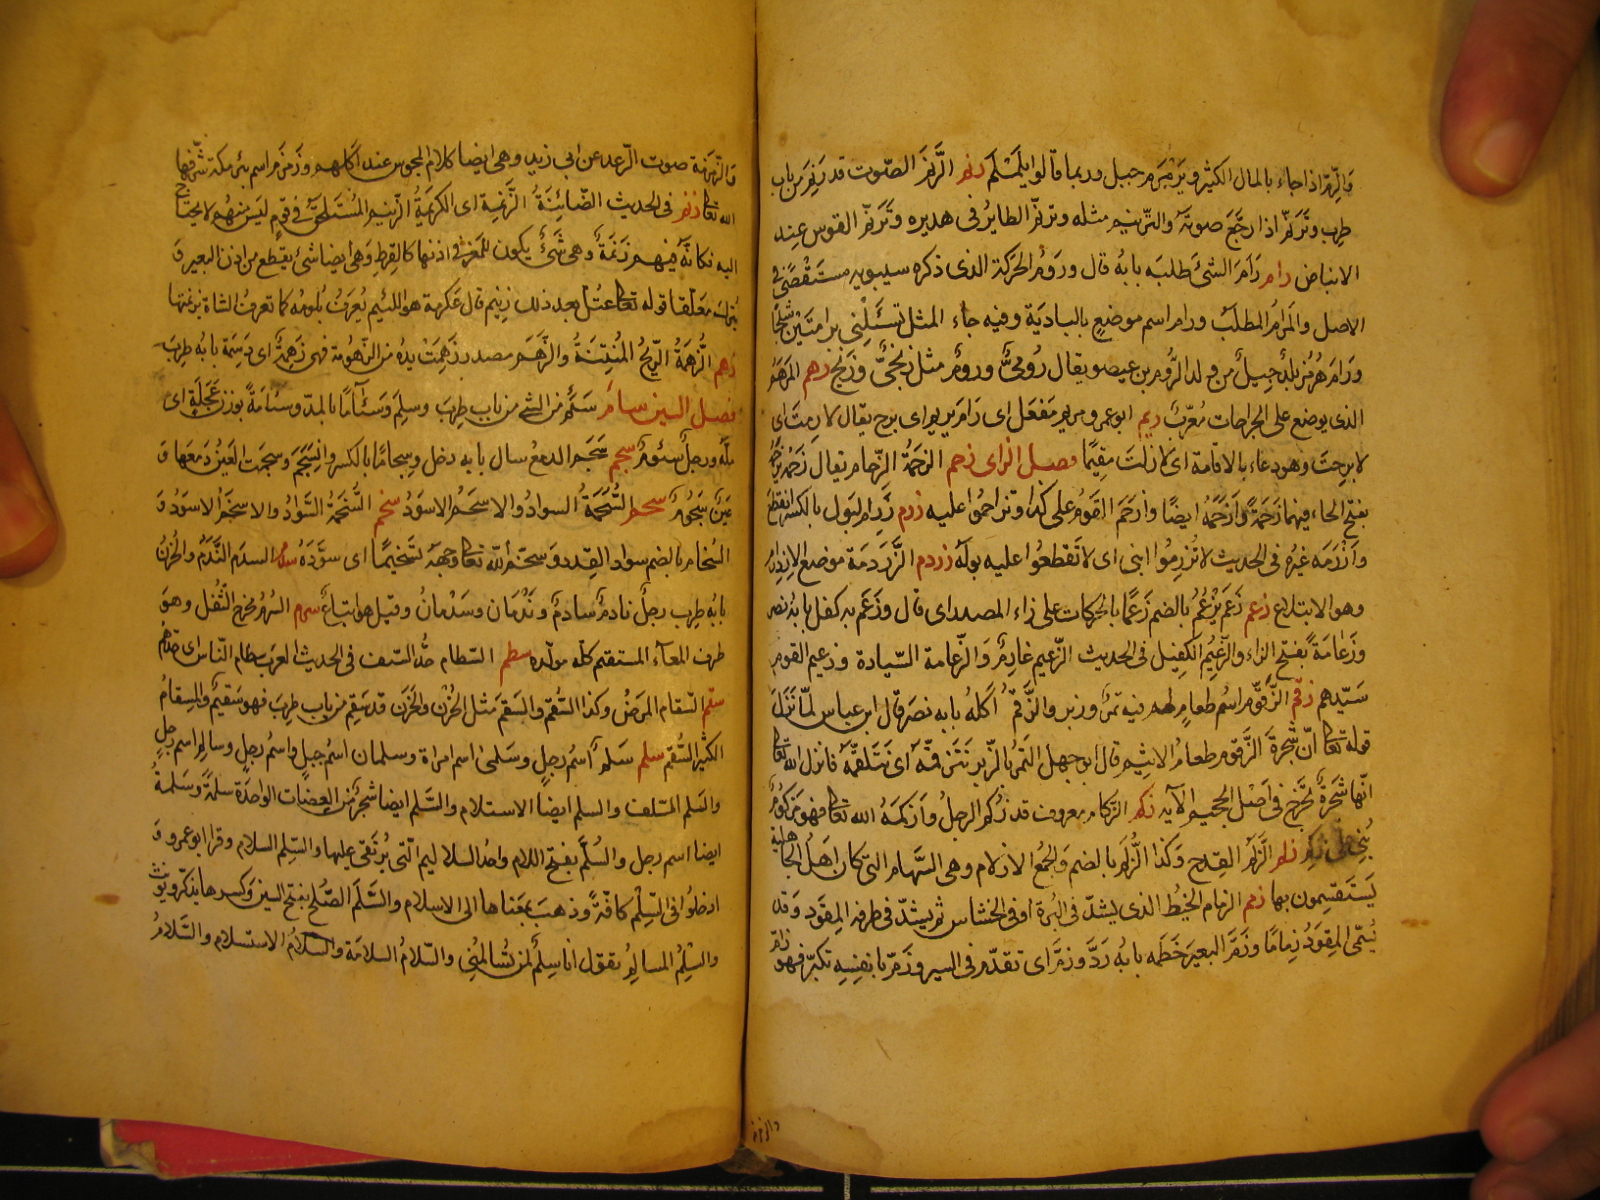 والرِّمّ اذا جاء بالمال الكثير ويَرَمْرَم جبل وربما قالوا يَلَمْلَم رنم الرَّنَم الصّوت قد رَنِمَ من باب
طرب وتَرَنّم اذا رجّع صوته والترنيم مثله وترنّم الطائر فى هديره وتَرَنّم القوس عند
الانباض رام رَامَ الشئ طلبه بابه قال ورَوْم الحركة الذى ذكره سيبويه مستقصًى فى
الاصل والمَرام المطلب ورام اسم موضع بالبادية وفيه جاء المثل تسئلنى برامتين شلجما
ورَامَهُرْمُز بلد جيل من ولد الرُّوم بن عيصو يقال رُومىٌّ ورومٌ مثل زنجىٌّ وزنج رهم المرهم
الذى يوضع على الجراحات معرّب ريم ابو عمرو مريم مَفعل اى رام يريم اى برح يقال لا رمت اى
لا برحت وهو دعاء بالاقامة اى لا زلت مقيمًا فصل الزاى زحم الزحمة الزحام يقال زحمه يزحمه
بفتح الحاء فيهما زَحمة وأزحَمَه ايضًا وازدحم القوم على كذا وتزاحموا عليه زرم زَرِم البول بالكسر انقطع
وأزْرَمَه غيره فى الحديث لا تُزرِموا ابنى اى لا تقطعوا عليه بوله زردم الزَّرْدَمة موضع الازدرام
وهو الابتلاع زعم زعم يزعُم بالضم زعمًا بالحركات على زاء المصدر اى قال وزَعَم به كفل بابه نصر
وزَعامة بفتح الزاء والزعيم الكفيل فى الحديث الزعيم غارم والزّعامة السّيادة وزعيم القوم
سيّدهم زقم الزَّقُّوم اسم طعام لهم فيه تمر وزبد والزَّقْم أكله بابه نصر قال ابن عباس لمّا نَزَل
قوله تعالى انّ شجرة الزقوم طعام الاثيم قال ابو جهل التمر بالزبد نتزقّمه اى نتلقّمه فانزل الله تعالى
انّها شجرة تخرج فى اصل الجحيم الآيه زكم الزكام معروف قد زُكم الرجل وأزكمَه الله تعالى فهو مزكوم
زلم الزَّلَم القِدح وكذا الزُّلَم بالضم والجمع الازلام وهى السّهام التى كان اهل الجاهلية
يَستَقسِمون بها زمم الزمام الخيط الذى يشدّ فى البُرة او فى الخشاش ثم يشدّ فى طرفه المِقوَد وقد
يُسمّى المِقوَدُ زِمامًا وزَمَّ البعيرَ خَطَمه بابه رَدَّ وزَمَّ اى تقدّم فى السير وزَمّ بانفسِه تكبّر فهو زامّ
والزمز
والزمزمة صوت الرّعد عن ابى زيد وهى ايضا كلام المجوس عند اكلهم وزَمزَم اسم بئر مكة شرّفها
الله تعالى زنم فى الحديث الضّائنة الزَّنِمَة اى الكريمة الزنيم المُستَلحَق فى قوم ليس منهم لا يحتاج
اليه فكانّه فيهم زنمة وهى شئ يكون للمعز فى اذنها كالقرط وهى ايضا شئ يقطع من اذن البعير و
يُترك معلّقا قوله تعالى عتلّ بعد ذلك زنيم قال عكرمة هو اللئيم يُعرَف بلؤمه كما تعرف الشاة بزنمتها
زهم الزُّهمة الرّيح المُنتِنة والزَّهَم مصدر زَهِمَت يدُه من الزُّهومة فهى زَهِمة اى دَسِمة بابه طرب
فصل السين سام سَئِم من الشئ من باب طرب وسِلم وسَئامًا بالمد وسَآمةً بوزن عَجَلَةٍ اى
ملّه ورجل سئوم سجم سَجَم الدمع سال بابه دخل وسِجامًا بالكسر وانسَجم وسجمت العينُ دمعها و
عين سَجُوم سحم السُّحمَةُ السواد والاسحَمُ الاسود سخم السُّخمة السَّواد والاسخم الاسود و
السُّخام بالضم سواد القِدر وسخّم الله تعالى وجهه تسخيمًا اى سوّده سدم السدم النّدَم والحزن
بابه طرِب رجل نادم سادم وندمان وسدمان وقيل هو اتباع سرم السُّرم مخرج الثُّفل وهو
طرف المعاء المستقيم كلمة مولّدة سطم السّطام حدّ السّيف فى الحديث العرب سِطام النّاس اى حدّهم
سقم السَّقام المرض وكذا السُّقم والسَّقَم مثل الحُزن والحَزَن قد سَقِم من باب طرب فهو سَقيم والمِسقام
الكثير السُّقم سلم سَلْم اسم رجل وسَلمى اسم امراة وسلمان اسم جبل واسم رجل وسالم اسم رجل
والسَّلم السلف والسلم ايضا الاستلام والسَّلَم ايضا شجر من العضات الواحدة سلمة وسَلمة
ايضا اسم رجل والسُّلَّم بفتح اللام واحد السلاليم التى يُرتقى عليها والسِّلم السلام وقرا ابو عمرو و
ادخلوا فى السِّلم كافّة وذهب بمعناها الى الاسلام والسَّلَم الصُّلح بفتح السين وكسرها يذكّر ويؤنّث
والسِّلْم المسالم يقول انا سِلمٌ لمن سالمنى والسّلام السلامة والسَّلام الاستسلام والسَّلام